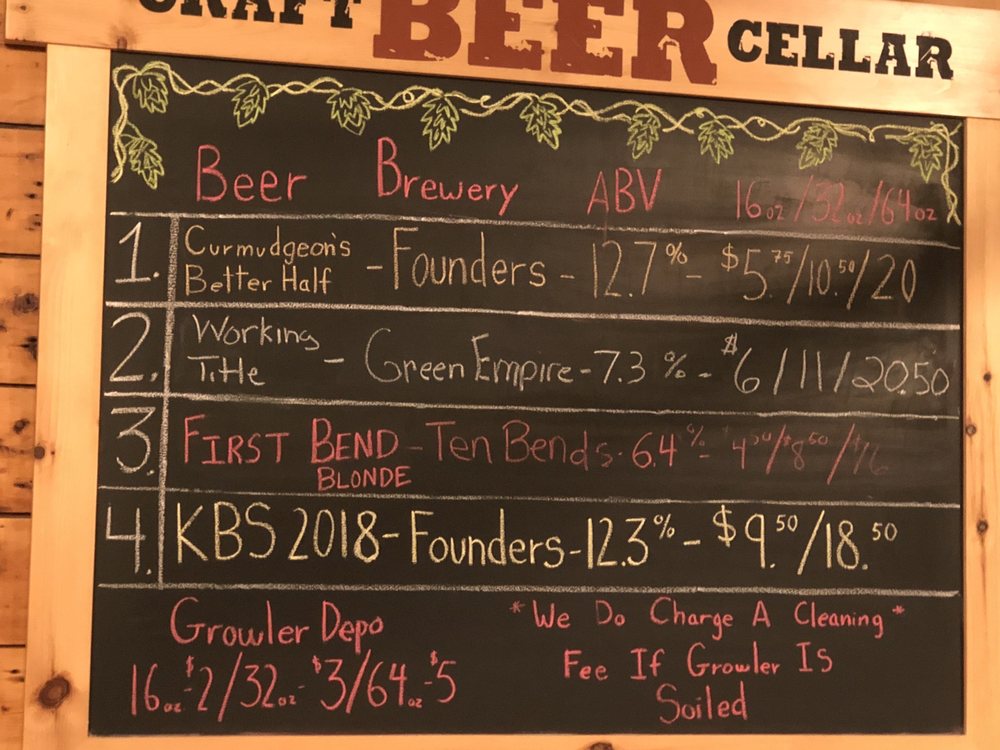 CRAFT BEER CELLAR
Beer Brewery ABV 16oz/32oz/64oz
1. Curmudgeon's Better Half - Founders - 12.7% - $5.75/10.50/20
2. Working Title - Green Empire - 7.3% - $6/11/20.50
3. FIRST BEND BLONDE - Ten Bends - 6.4%
4. KBS 2018 - Founders - 12.3% - $9.50/18.50
Growler Depo
16oz-$2/32oz-$3/64oz-$5
*We Do Charge A Cleaning*
Fee If Growler Is
Soiled